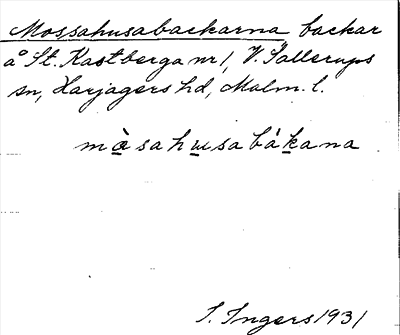 Mossahusabackarna backar
å St. Kastberga nr 1, V. Sallerups
sn, Harjagers hd, Malm. l.
mɑ̀sahusabákana
I. Ingers 1931